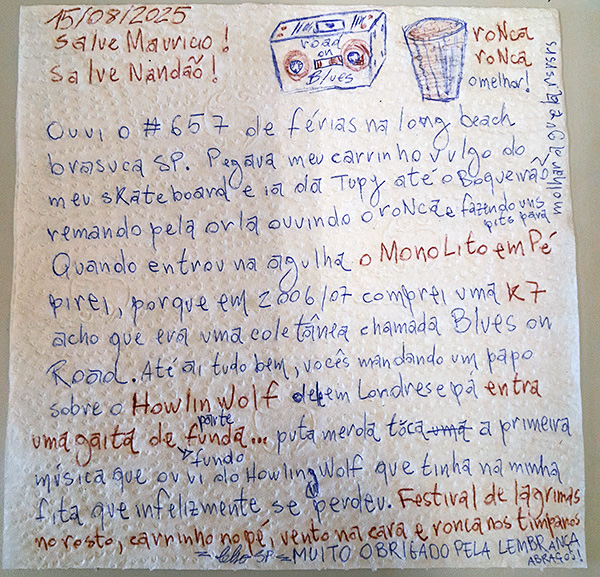 15/08/2025
Salve Mauricio!
Salve Nandão!
road
on
Blues
roNca
roNca
o melhor!
molhar a
Ouvi o #657 de férias na long beach
brasuca SP. Pegava meu carrinho vulgo do
meu skateboard e ia da Tupy até o Boqueirão
remando pela orla ouvindo o roNca e fazendo uns
pits para
Quando entrou na agulha o MonoLito em Pé
pirei, porque em 2006/07 comprei uma K7
acho que era uma coletânea chamada Blues on
Road. Até aí tudo bem, vocês mandando um papo
sobre o Howlin Wolf em Londres e pá entra
uma gaita de funda... puta merda tóca uma a primeira
parte
fundo
música que ouvi do Howling Wolf que tinha na minha
fita que infelizmente se perdeu. Festival de lágrimas
no rosto, carrinho no pé, vento na cara e ronca nos tímpanos
SP = MUITO OBRIGADO PELA LEMBRANÇA
ABRAÇOS!